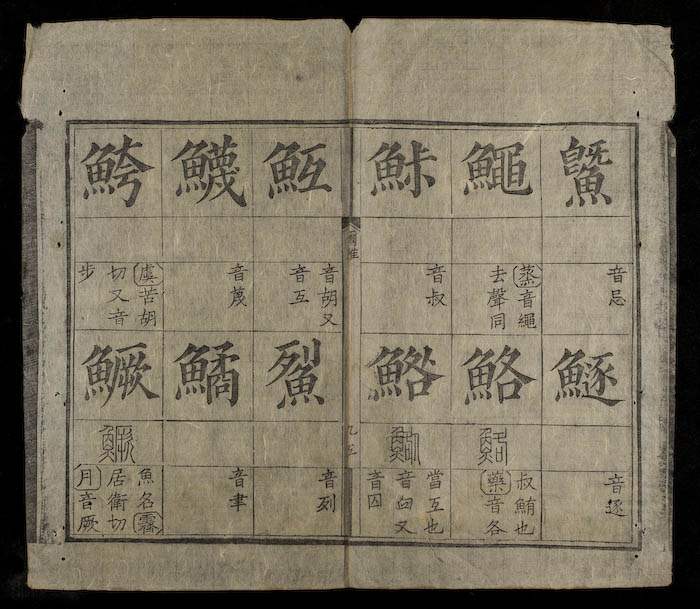 鱀
音忌
鱦
蒸音繩
去聲同
音叔
鱁
音逐
鮥
叔鮪也
藥音各
鯦
當互也
音臼又
音囚
爾雅
九五
魱
音胡又
音互
鱴
音蔑
鮬
虞苦胡
切又音
步
鮤
音列
鱊
音聿
鱖
魚名霽
居衛切
月音厥